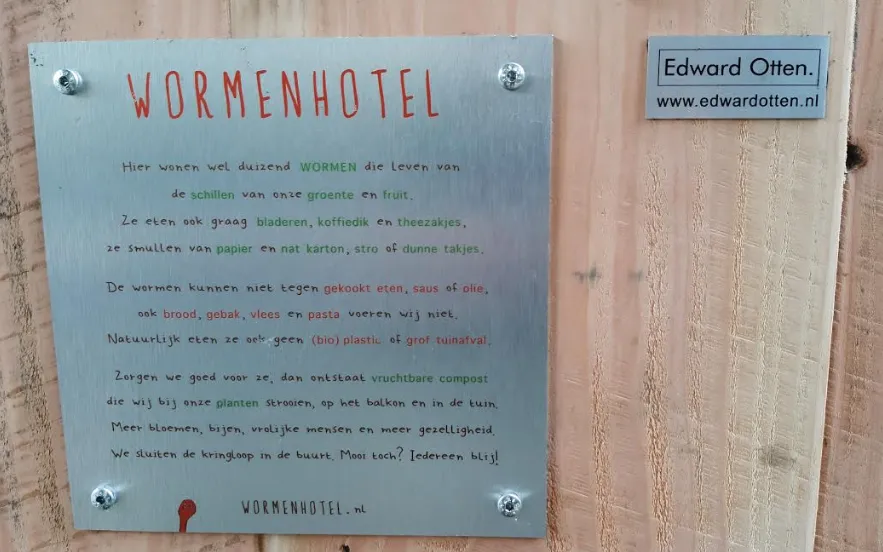 WORMENHOTEL
Hier wonen wel duizend WORMEN die leven van
de schillen van onze groente en fruit.
Ze eten ook graag bladeren, koffiedik en theezakjes,
ze smullen van papier en nat karton, stro of dunne takjes.
De wormen kunnen niet tegen gekookt eten, saus of olie,
ook brood, gebak, vlees en pasta voeren wij niet.
Natuurlijk eten ze ook geen (bio) plastic of grof tuinafval.
Zorgen we goed voor ze, dan ontstaat vruchtbare compost
die wij bij onze planten strooien, op het balkon en in de tuin.
Meer bloemen, bijen, vrolijke mensen en meer gezelligheid.
We sluiten de kringloop in de buurt. Mooi toch? Iedereen blij!
WORMENHOTEL.nl
Edward Otten.
www.edwardotten.nl